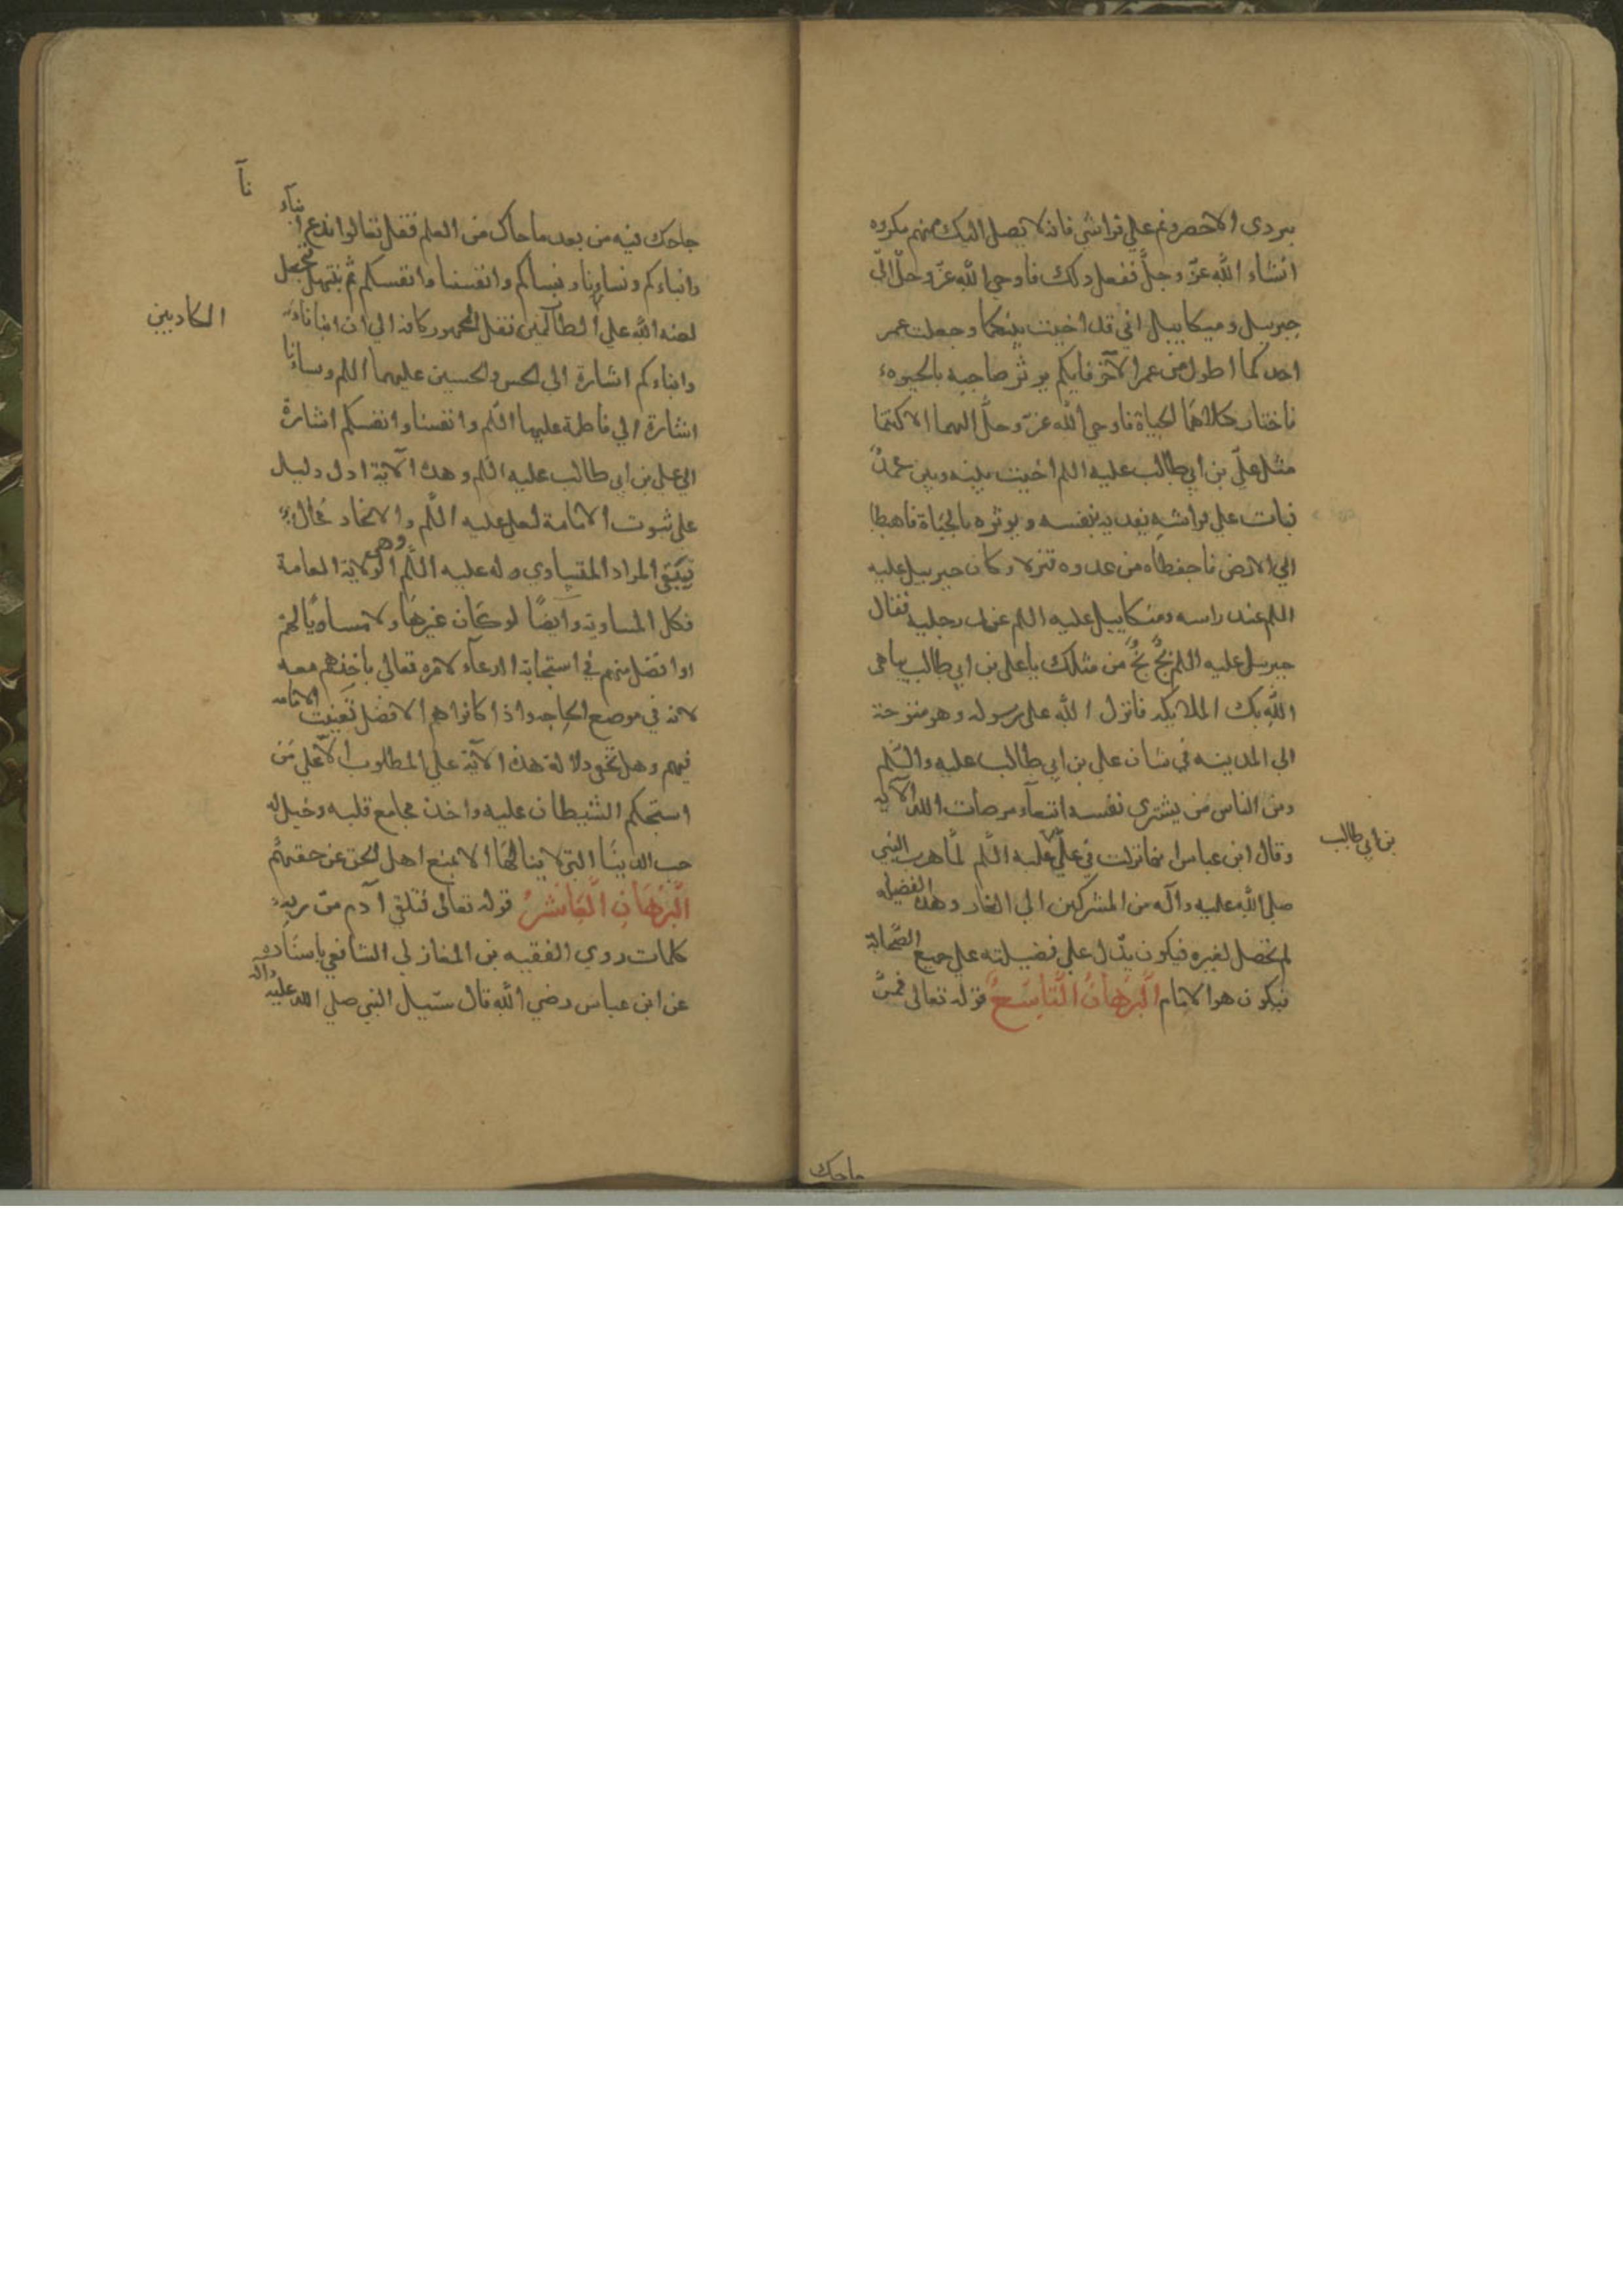 ببردي الاخضر ونم علي فراشي فانه لا يصل اليك منهم مكروه
انشاء الله عزّ وجلّ ففعل ذلك فاوحي الله عزّ وجلّ الي
جبريل وميكاييل اني قد اخيت بينكما وجعلت عمر
احدكما اطول من عمر الآخر فايكم يوثر صاحبه بالحيوة
فاختار كلاهما الحياة فاوحي الله عزّ وجلّ اليهما الا كنتما
مثل عليّ بن ابي طالب عليه السلم اخيت بينه وبين محمدٍ
فبات علي فراشه يفديه بنفسه ويوثره بالحياة فاهبطا
الي الارض فاحفظاه من عدوه فنزلا وكان جبرييل عليه
السلم عند راسه وميكاييل عليه السلم عند رجليه فقال
جبريل عليه السلم بخٍّ بخٍّ من مثلك يا علي بن ابي طالب يباهى
الله بك الملايكه فانزل الله على رسوله وهو متوجه
الي المدينه في شان علي بن ابي طالب عليه السّلم
ومن الناس من يشترى نفسه ابتغآء مرضات الله الآيه
وقال ابن عباس انما نزلت في عليّ عليه السّلم لمّا هرب النبي
بن ابي طالب
صلي الله عليه وآله من المشركين الي الغار وهذه الفضيله
لم تحصل لغيره فيكون يدل علي فضيلته علي جميع الصّحابة
فيكون هو الامام البرهان التاسع قوله تعالى فمن
حاجك
جاحك فيه من بعد ما جاك من العلم فقل تعالوا ندع ابنآء
نآ
وابناءكم ونساونا ونساكم وانفسنا وانفسكم ثم نبتهل فنجعل
لعنة الله علي الظالمين فنقل الجمهور كافه الي ان ابناناء
الكاذبين
وابناءكم اشارة الي الحسن والحسين عليهما السلم ونساءنا
اشارة الي فاطمة عليها السّلم وانفسنا وانفسكم اشارة
الي علي بن ابي طالب عليه السّلم وهذه الآية ادل دليل
على ثبوت الامامة لعلي عليه السّلم والاتحاد محال
فيبقى المراد المتساوي وله عليه السّلم الولاية العامة
وهي
فكل المساويه وايضًا لو كان غيرها ولا مساويًا لهم
او افضل منهم في استجابة الدعآء لامره تعالي باخذهم معه
لانه في موضع الحاجه واذا كانوا هم الافضل تعينت الامامه
فيهم وهل تخفي دلالة هذه الآية علي المطلوب الّا علي من
استحكم الشيطان عليه واخذ بمجامع قلبه وخيل له
حب الدينا التي لا ينالها الا بمنع اهل الحق عن حقهم
البرهان العاشر قوله تعالى فتلقي آدم من ربه
كلمات روي الفقيه بن المغازلي الشافعي باسناده
عن ابن عباس رضي الله قال سييل النبي صلي الله عليه وآله